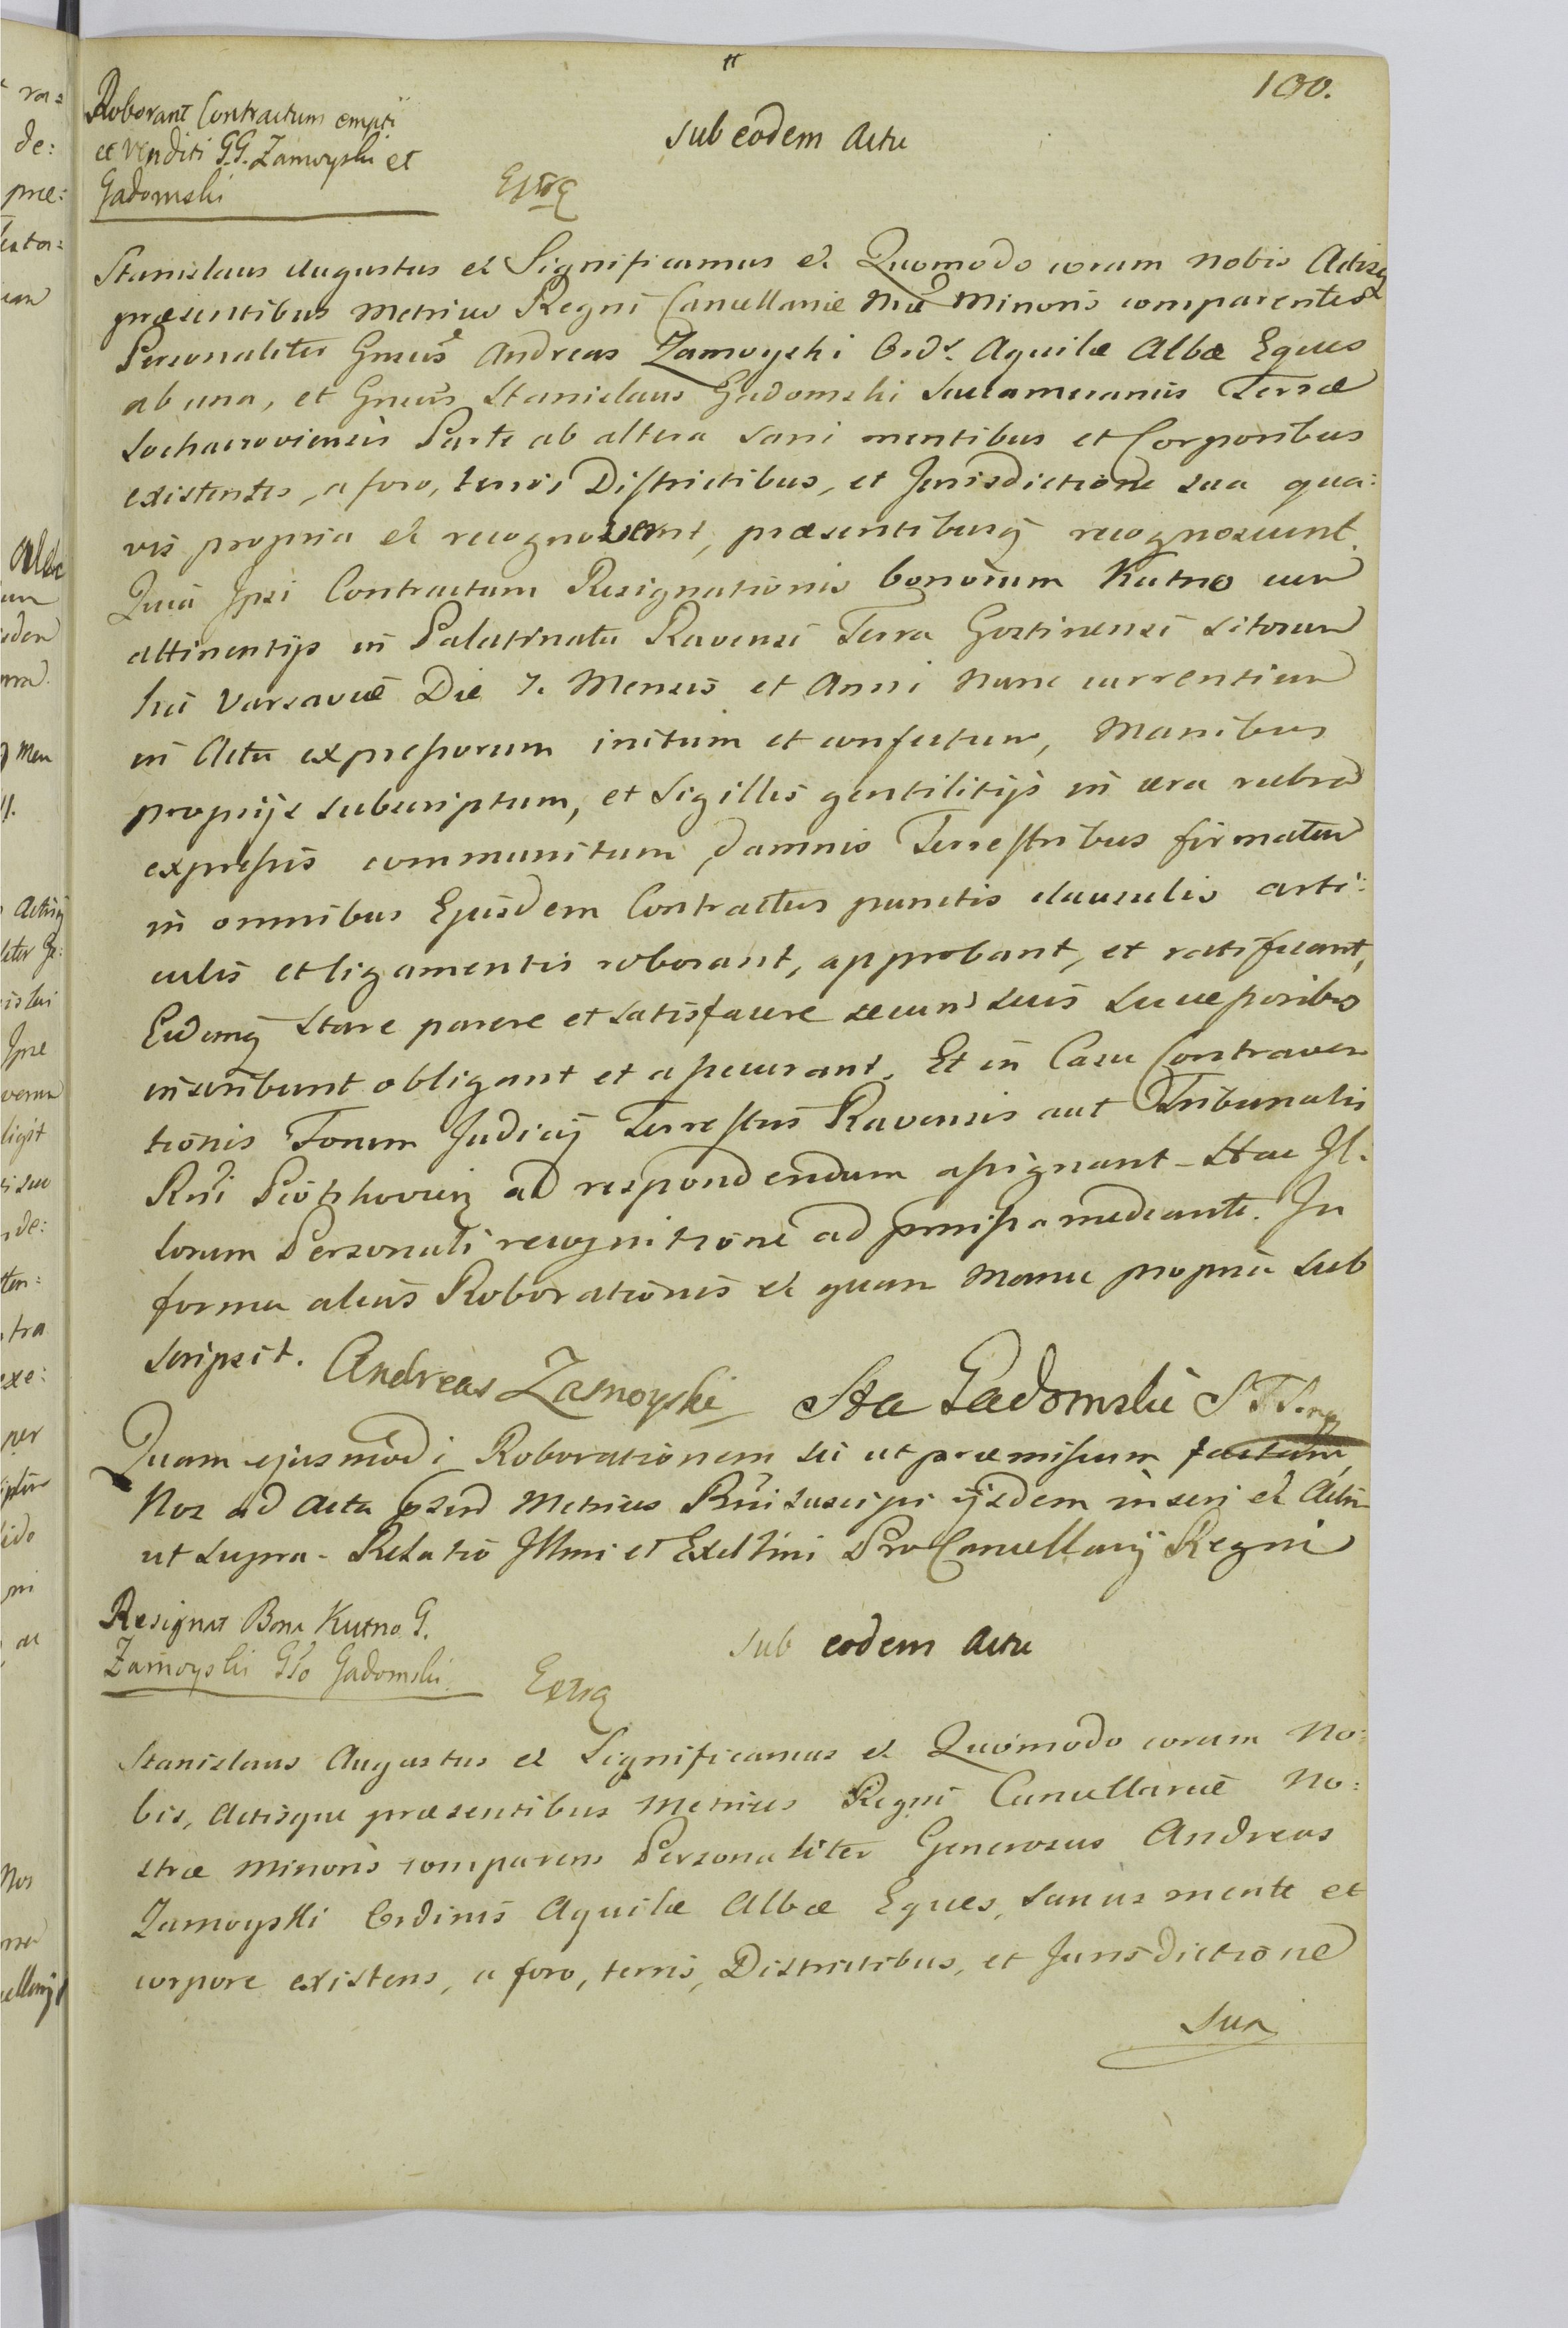 100.
Roborant Contractum empti
et venditi G.G. Zamoyski et
Gadomski
sub eodem Actu
Extra
Stanislaus Augustus et Significamus et Quomodo coram nobis Actisq
præsentibus Metrices Regni Cancellariæ Nræ Minoris comparentes
Personaliter Gnsus Andreas Zamoyski Ord. Aquilæ Albæ Eques
ab una, et Gnsus Stanislaus Gadomski Succamerarius Terræ
Sochacoviensis Parte ab altera sani mentibus et Corporibus
existentes, a foro, terris Districtibus, et Jurisdictione sua qua:
vis propria et recognoverunt, præsentibusq recognoscunt.
Quia Ipsi Contractum Resignationis bonorum Kutno cum
attinentijs in Palatinatu Ravensi Terra Gostinensi sitorum
hic Varsaviæ Die 7. Mensis et Anni nunc currentium
in Actu expressorum initum et confectum, Manibus
proprijs subscriptum, et sigillis gentilitijs in cera rubra
expressis communitum, damnis Terrestribus firmatum
in omnibus Ejusdem Contractus punctis clausulis arti:
culis et ligamentis roborant, approbant, et ratificant,
Eidemq stare parere et satisfacere secum suis Successoribus
inscribunt obligant et assecurant. Et in Casu Contraven
tionis Forum Judicij Terrestris Ravensis aut Tribunalis
Rni Piotrkovien ad respondendum assignant - Hac Il:
lorum Personali recognitione ad præmissa mediante. In
forma alias Roborationis et quam Manu propria sub
scripsit. Andreas Zamoyski Sta Gadomski S T S
Quam ejusmodi Roborationem sic ut præmissum factam
Nos ad Acta præsend Metrices Rni suscipi ijsdem inseri et Actu
ut supra - Relatio Illmi et Exclltmi ProCancellarij Regni
Resignat Bona Kutno G.
Zamoyski Gso Gadomski
sub eodem Actu
Extra
Stanislaus Augustus et Significamus et Quomodo coram No:
bis, Actisque præsentibus Metrices Regni Cancellariæ No:
stræ Minoris comparens Personaliter Generosus Andreas
Zamoyski Ordinis Aquilæ Albæ Eques, sanus mente et
corpore existens, a foro, terris, Districtibus, et Jurisdictione
sua